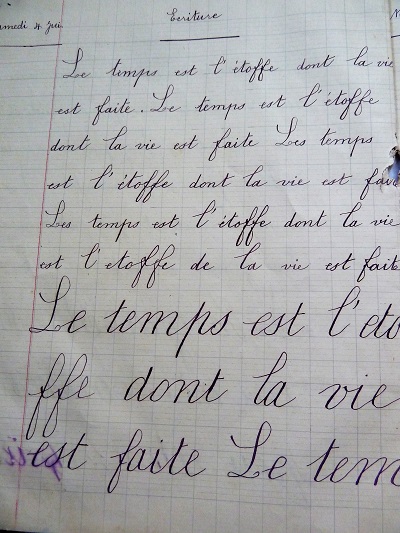 Samedi 4 Juin
Ecriture
Le temps est l'étoffe dont la vie
est faite. Le temps est l'étoffe
dont la vie est faite Les temps
est l'étoffe dont la vie est faite
Les temps est l'étoffe dont la vie
est l'etoffe de la vie est faite
Le temps est l'éto
ffe dont la vie
est faite Le tem